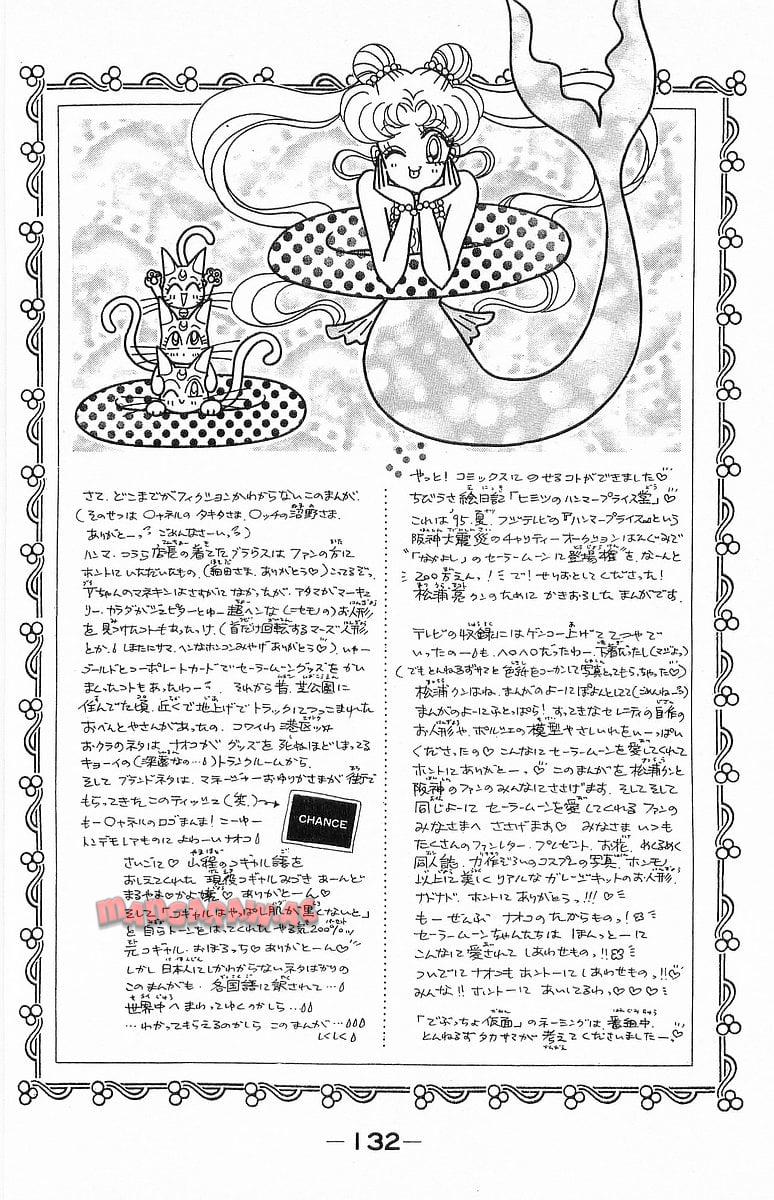 やっと!コミックスにのせるコトができました♡
ちびうさ絵日記「ヒミツのハンマープライス堂」♡
これは'95.夏.フジテレビの『ハンマープライス』という
阪神大震災のチャリティーオークションばんぐみで
"「なかよし」のセーラームーンに登場権"を、なーんと
200万えん。!で!せりおとしてくださった!
松浦亮クンのためにかきおろしたまんがです。
テレビの収録にはゲンコー上げててつやで
いったのー!も、ヘロヘロだったわー、下着だったし(マジよっ)
(でもとんねるずサマと色紙をコーカンして写真とってもらっちゃった♡)
松浦クンはね、まんがのよーにぽよんとしてて(ごめんねーっ)
まんがのよーにふとっぱら!すってきなセレニティの自作の
お人形や、ポルシェの模型やさしいれをいーっぱい
くださったの♡こんなにセーラームーンを愛してくれて
ホントにありがとーっ♡このまんがを松浦クンと
阪神のファンのみんなにささげます。そしてそして
同じよーにセーラームーンを愛してくれるファンの
みなさまへささげます♡みなさまいつも
たくさんのファンレター、プレゼント、お花、めくるめく
同人誌、力作ぞろいのコスプレの写真、ホンモノ
以上に美しくリアルなガレージキットのお人形、
ナドナド、ホントにありがとうっ!!!♡
もーぜんぶナオコのたからものっ!
セーラームーンちゃんたちはほんっとーに
こんなに愛されてしあわせものっ!!
ついでにナオコもホントーにしあわせものっ!!♡
みんな!!ホントーにあいてるわっ♡♡♡♡
「でぶっちょ仮面」のネーミングは、番組中、
とんねるずタカサマが考えてくださいましたー。
さて、どこまでがフィクションかわからないこのまんが、
(そのせつは〇ャネルのタキタさま、〇ッチの沼野さま、
ありがとーっごめんなさーい。)
ハンマ・つうら店長の着てたブラウスはファンの方に
ホントにいただいたもの。(細田さま、ありがとう♡)こってるぞっ。
Pちゃんのマネキンはさすがになかったが、アタマがマーキュ
リー、カラダがジュピターとゆー超ヘンな(ニセモノの)お人形
を見つけたコトもあったっけ。(首だけ回転するマーズ人形
とか。(ほたにサマ、ヘンなホンコンみやげありがとう♡)いゃー
ゴールドとコーポレートカードでセーラームーングッズをかい
まくったコトもあったわー。それから昔、芝公園に
住んでた頃、近くで地上げでトラックにつっこまれた
おべんとやさんがあったの。コワイわ港区ッ
おクラのネタは、ナオコがグッズを死ぬほどしまってる
キョーイの(深夜なの…)トランクルームから。
そしてブランドネタは、マネージャーおゆりがさまが街で
もらってきたこのティッシュ(笑)→
もー〇ャネルのロゴまんま!こーゆー
トンデモしてものによわーいナオコ
CHANCE
さいごに♡山程のコギャル語を
おしえてくれた現役コギャルみづき あーんど
まるやま♡かよ嬢♡ありがとーん♡
そして「コギャルはやっぱし肌が黒くないと」
と自らトーンをはってくれたやる気200%っ
元コギャル・おぼろっち♡ありがとーん♡
しかし日本人にしかわからないネタばかりの
このまんがも、各国語に訳されて…
世界中へまわってゆくのかしら…
…わかってもらえるのかしらこのまんが…
しくしく
—132—